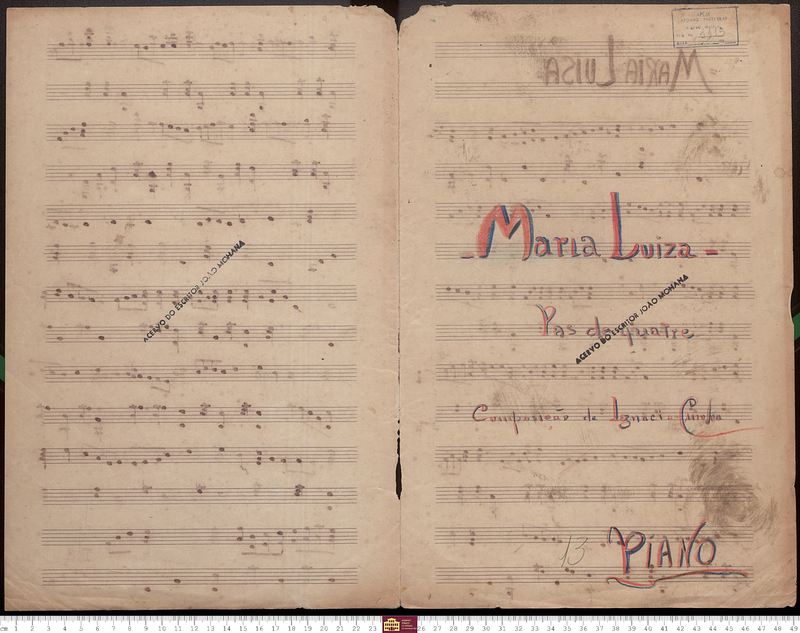 ACERVO DO ESCRITOR JOÃO MOHANA
MARIA LUISA
- Maria Luiza -
Pas de quatre
ACERVO DO ESCRITOR JOÃO MOHANA
Composição de Ignacio
13
PIANO
cm 1 2 3 4 5 6 7 8 9 10 11 12 13 14 15 16 17 18 19 20 21 22 23 26 27 28 29 30 31 32 33 34 35 36 37 38 39 40 41 42 43 44 45 46 47 48 49